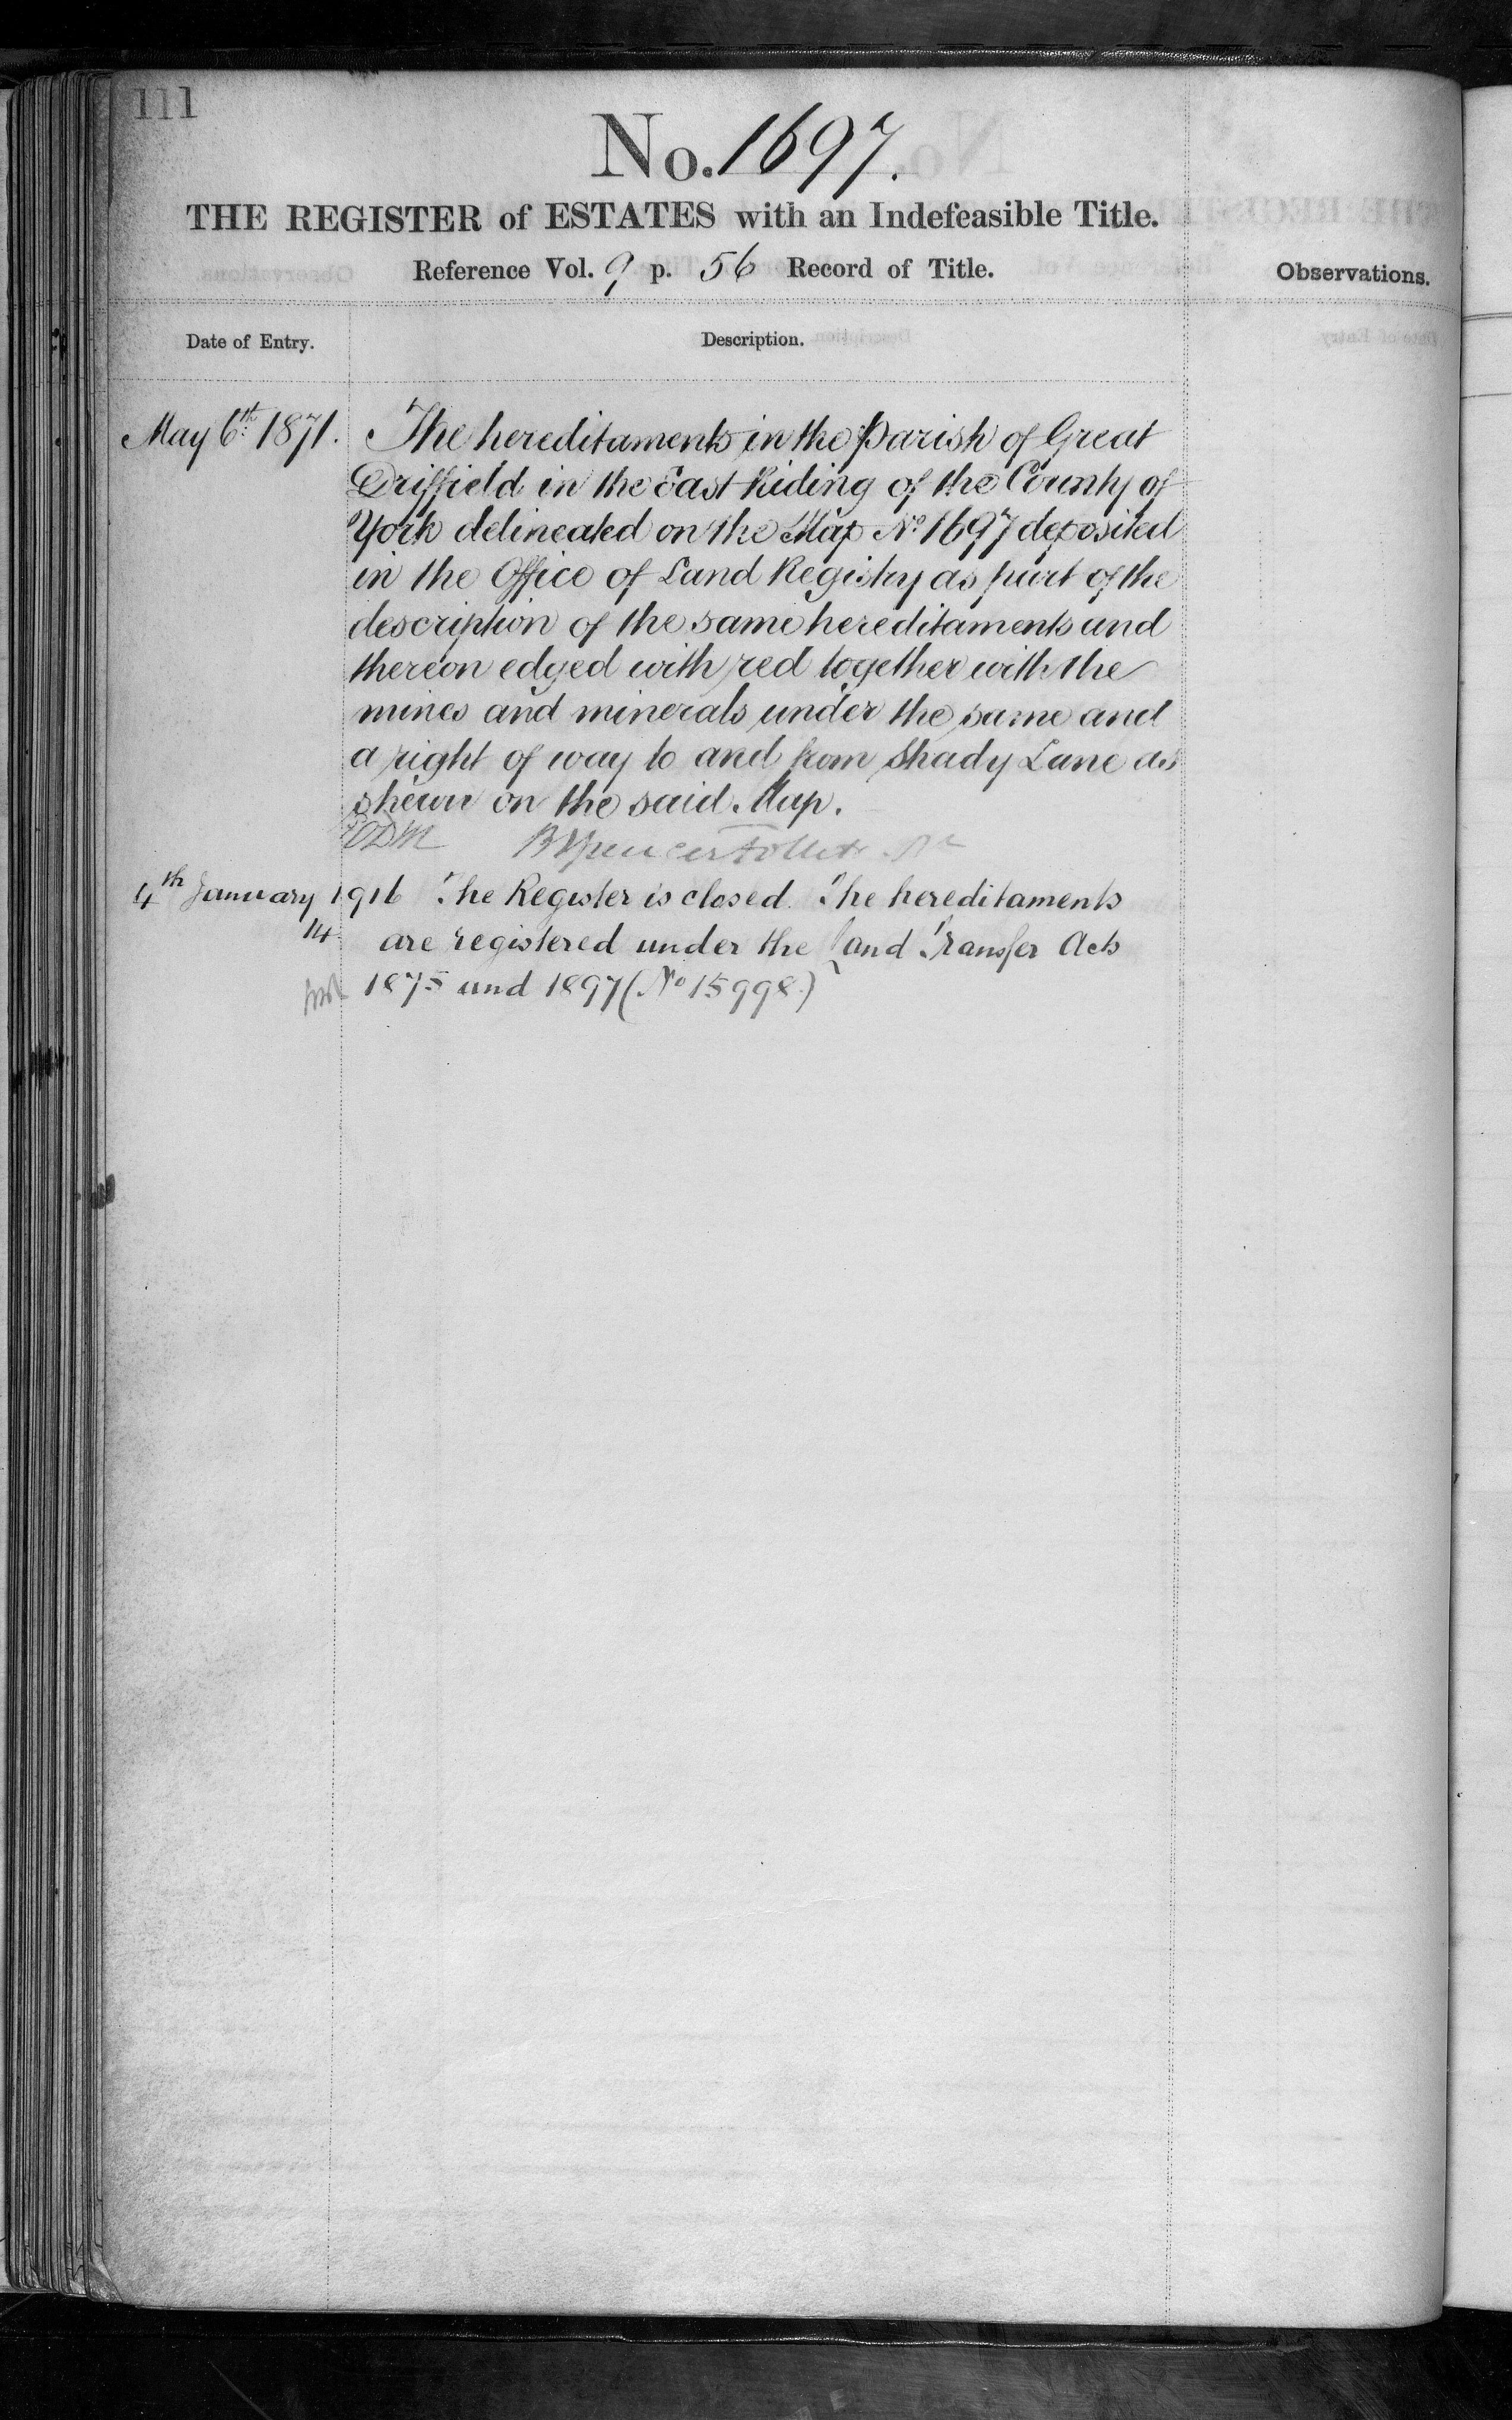 111
No. 1697.
THE REGISTER of ESTATES with an Indefeasible Title.
Reference Vol. 9 p. 56 Record of Title.
Observations.
Date of Entry.
Description.
May 6th 1871. The hereditaments in the Parish of Great
Driffield in the East Riding of the County of
York delineated on the Map No 1697 deposited
in the Office of Land Registry as part of the
description of the same hereditaments and
thereon edged with red together with the
mines and minerals under the same and
a right of way to and from Shady Lane as
shewn on the said Map.
B Spencer Follett
4th January 1916 The Register is closed. The hereditaments
14 are registered under the Land Transfer Acts
1875 and 1897 (No 15998.)